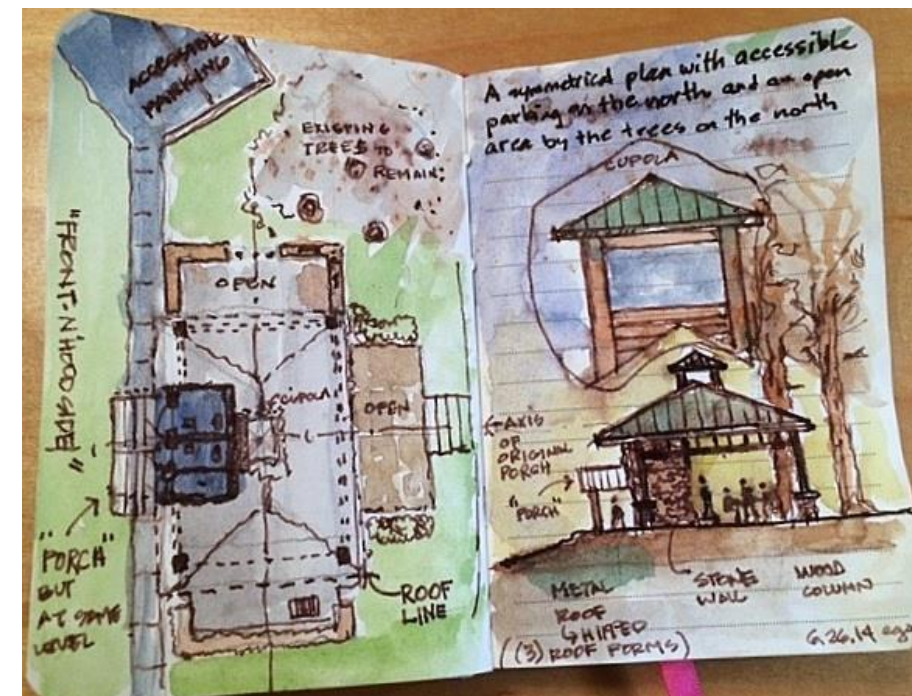 ACCESSIBLE
PARKING
EXISTING
TREES TO
REMAIN:
"FRONT-N'HOOD SIDE"
OPEN
CUPOLA
OPEN
"PORCH"
BUT
AT SAME
LEVEL
ROOF
LINE
A symmetrical plan with accessible
parking on the north and an open
area by the trees on the north
CUPOLA
AXIS
OF
ORIGINAL
PORCH
"PORCH"
METAL
ROOF
HIPPED
(3) ROOF FORMS)
STONE
WALL
WOOD
COLUMN
6.26.14